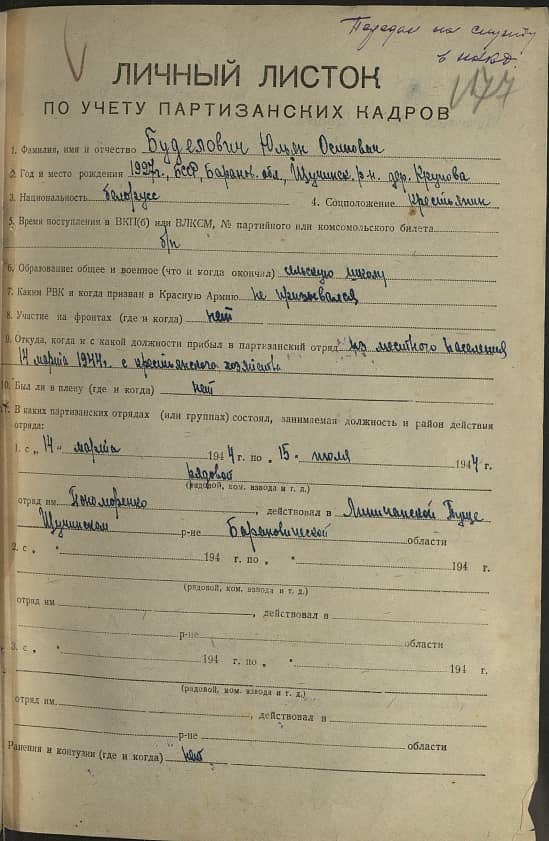 Передан на службу
в НКВД.
177
ЛИЧНЫЙ ЛИСТОК
ПО УЧЕТУ ПАРТИЗАНСКИХ КАДРОВ
1. Фамилия, имя и отчество Буделович Юльян Осипович
2. Год и место рождения 1927г., БССР, Баранов. обл, Щучинск. р-н. дер. Крупова
3. Национальность белорусс 4. Соцположение крестьянин
5. Время поступления в ВКП(б) или ВЛКСМ, № партийного или комсомольского билета
б/п
6. Образование: общее и военное (что и когда окончил) сельскую школу
7. Каким РВК и когда призван в Красную Армию не призывался
8. Участие на фронтах (где и когда) нет
9. Откуда, когда и с какой должности прибыл в партизанский отряд из местного населения
14 марта 1944г. с крестьянского хозяйства
10. Был ли в плену (где и когда) нет
11. В каких партизанских отрядах (или группах) состоял, занимаемая должность и район действия
отряда:
1. с „14" марта 1944 г. по „15" июля 1944 г.
рядовой
(рядовой, ком. взвода и т. д.)
отряд им. Пономаренко, действовал в Липичанской Пуще
Щучинском р-не Барановической области
2. с „ " 194 г. по „ " 194 г.
(рядовой, ком. взвода и т. д.)
отряд им , действовал в
р-не области
3. с „ " 194 г. по „ " 194 г.
(рядовой, ком. взвода и т. д.)
отряд им. , действовал в
р-не области
Ранения и контузии (где и когда) нет